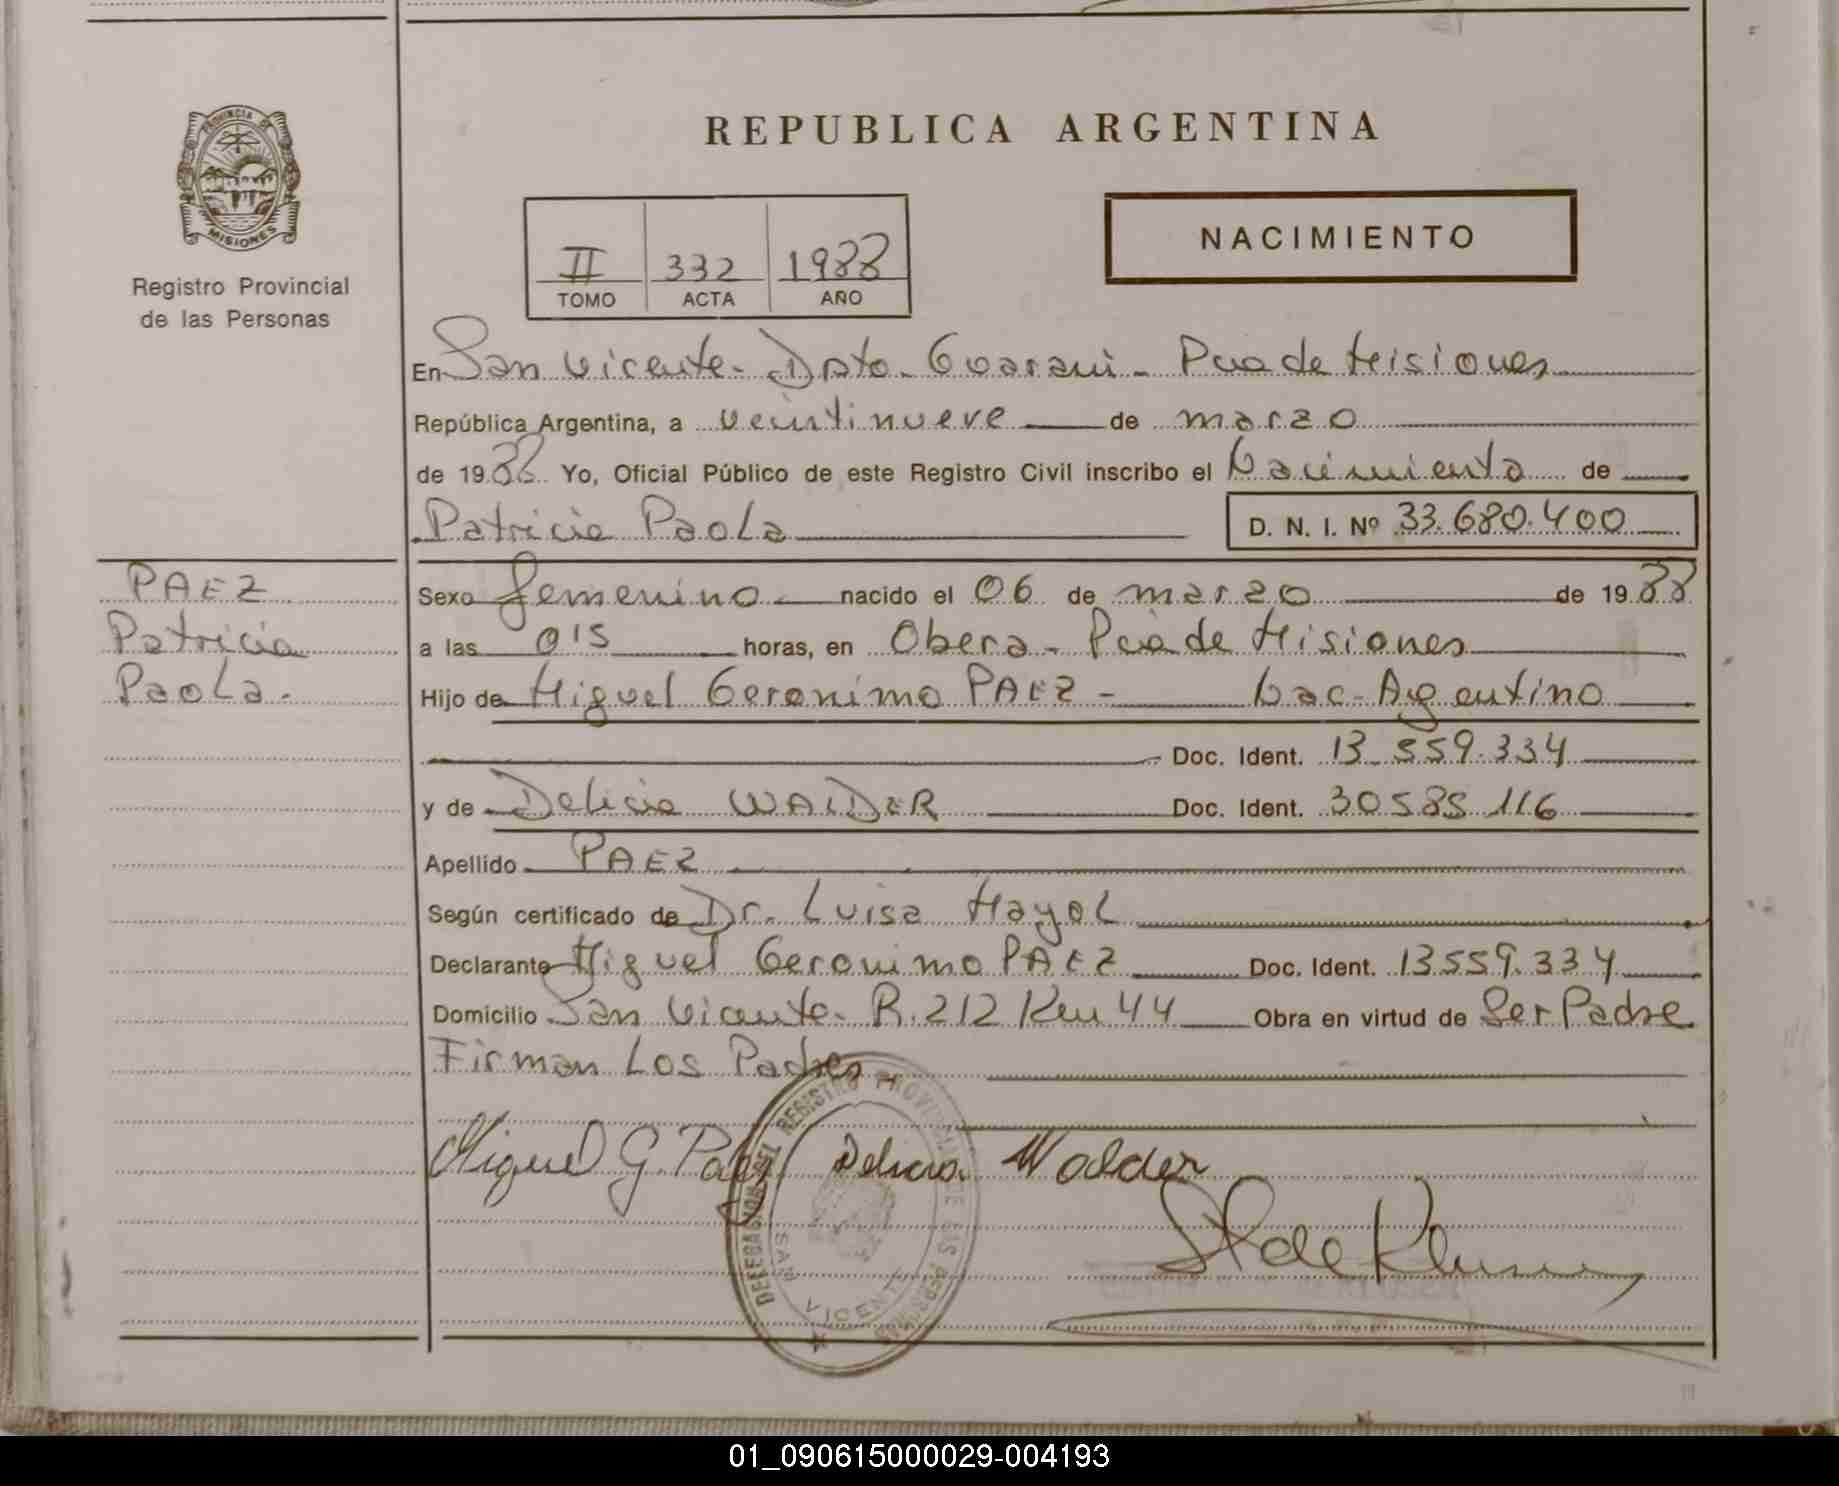 PROVINCIA DE
MISIONES
Registro Provincial
de las Personas
REPUBLICA ARGENTINA
II 332 1988
TOMO ACTA AÑO
NACIMIENTO
En San Vicente - Dpto. Guarani - Pcia de Misiones
República Argentina, a veintinueve de marzo
de 1988 Yo, Oficial Público de este Registro Civil inscribo el Nacimiento de
Patricia Paola
D. N. I. Nº 33.680.400
PAEZ
Patricia
Paola.
Sexo femenino nacido el 06 de marzo de 1988
a las 0'15 horas, en Obera - Pcia de Misiones
Hijo de Miguel Geronimo PAEZ - Nac. Argentino
Doc. Ident. 13.559.334
y de Delicia WALDER Doc. Ident. 30585.116
Apellido PAEZ
Según certificado de Dr. Luisa Mayol
Declarante Miguel Geronimo PAEZ Doc. Ident. 13559.334
Domicilio San Vicente - R.212 Km 44 Obra en virtud de Ser Padre
Firman Los Padres
Miguel G. Paez Delicia Walder
DELEGACION DEL REGISTRO PROVINCIAL DE LAS PERSONAS
SAN VICENTE
01_090615000029-004193